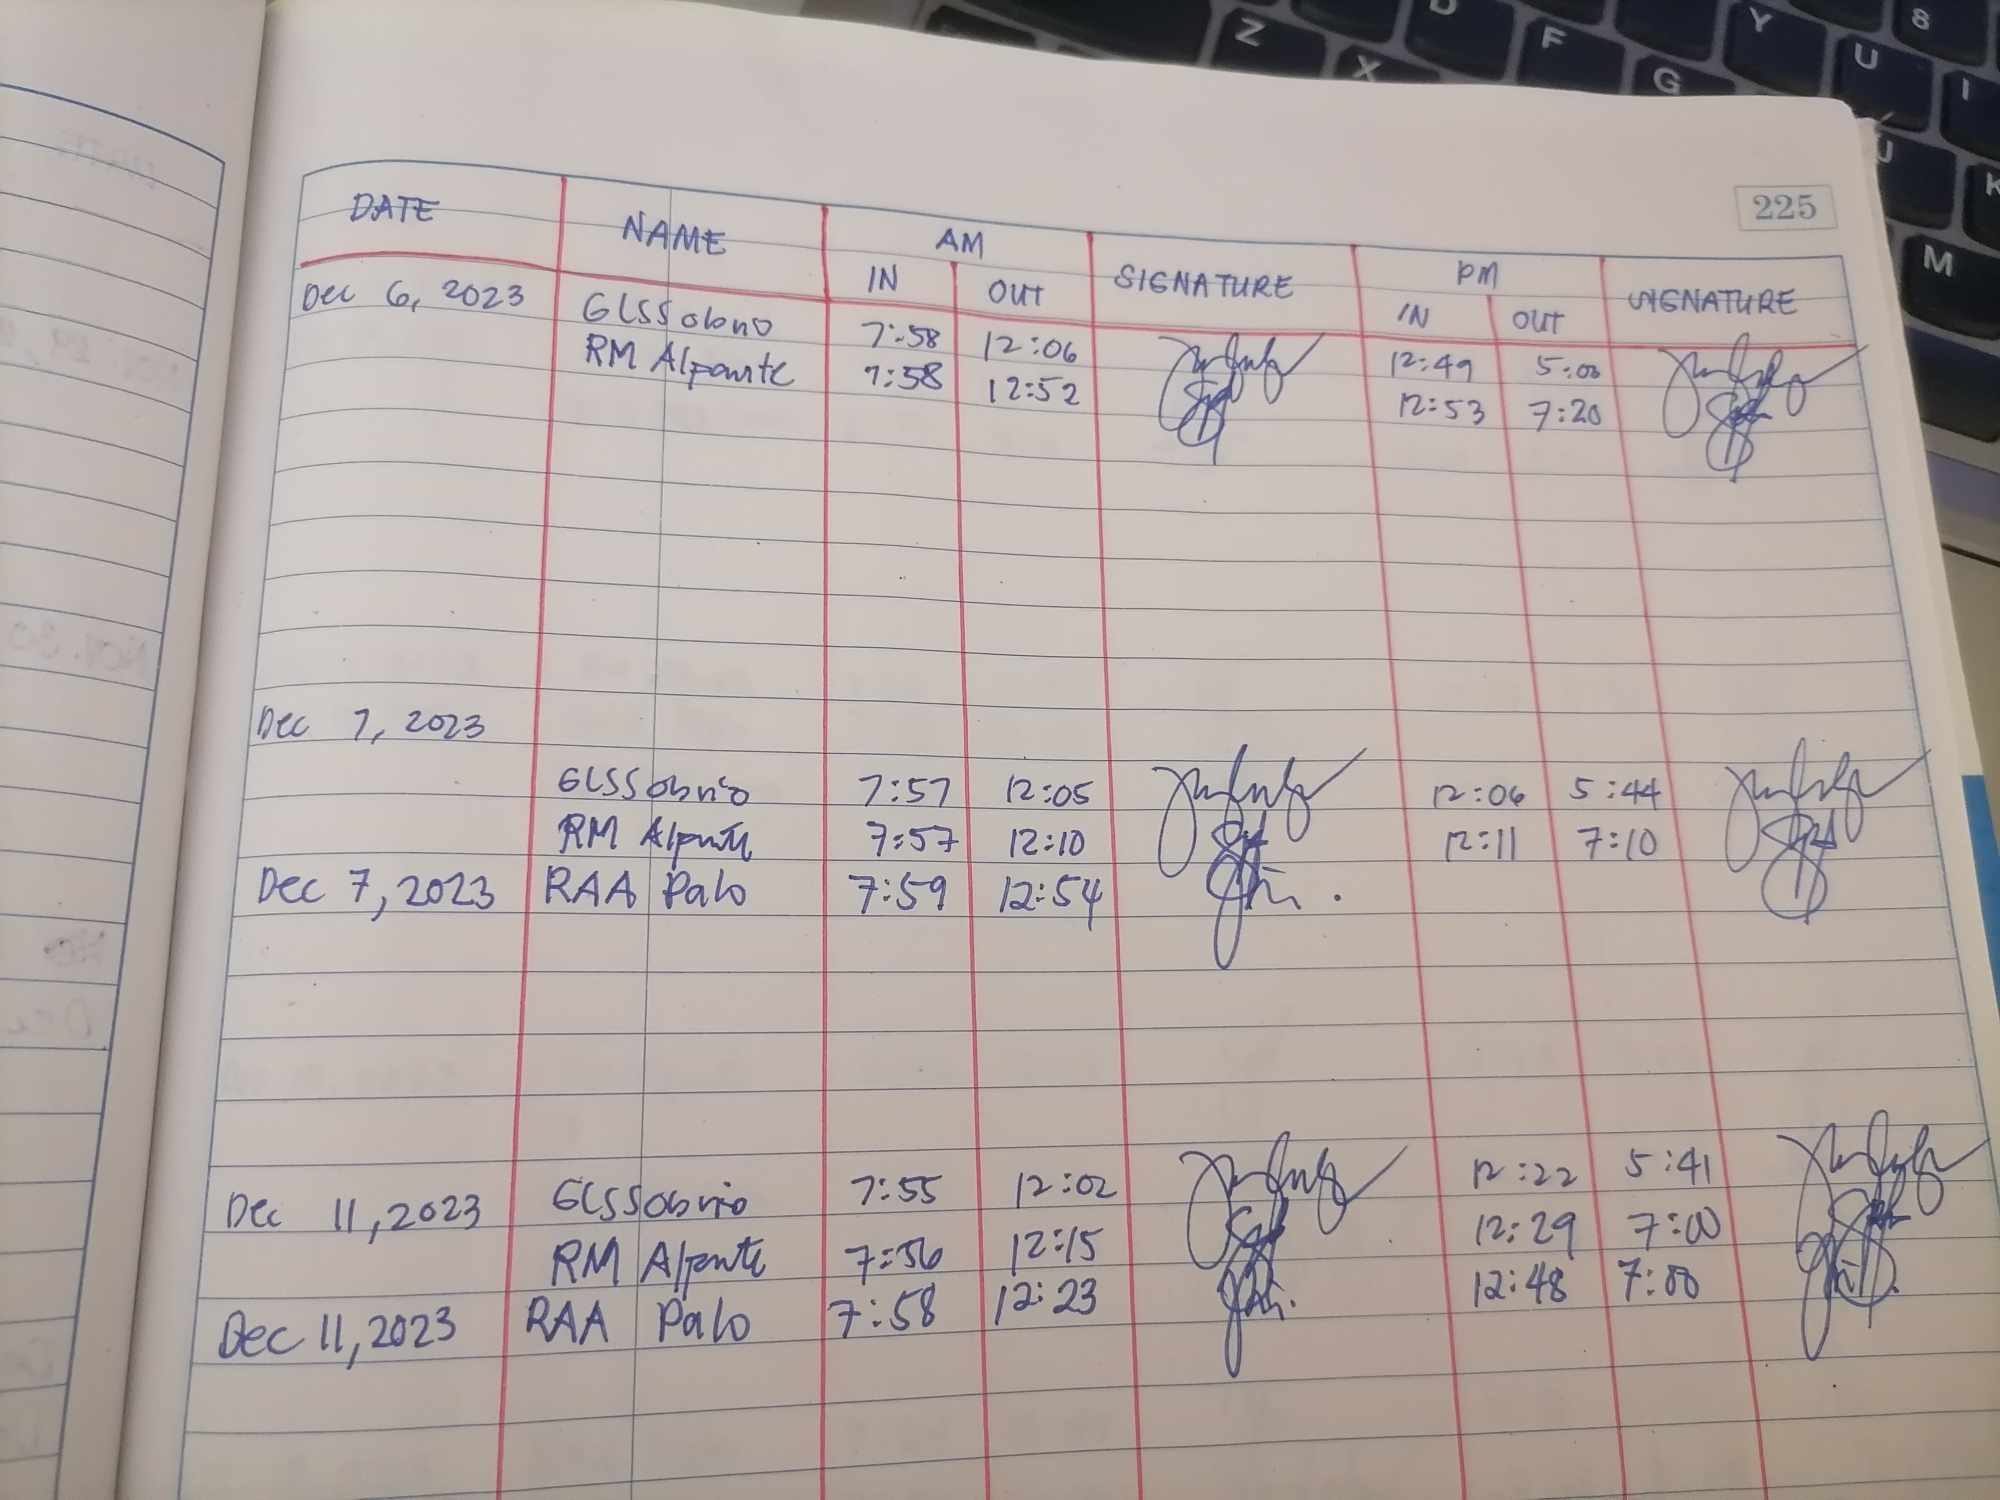 225
DATE NAME AM SIGNATURE PM SIGNATURE
IN OUT IN OUT
Dec 6, 2023 GLSSobrio 7:58 12:06 12:49 5:00
RM Alpante 7:58 12:52 12:53 7:20
Dec 7, 2023
GLSSobrio 7:57 12:05 12:06 5:44
RM Alpante 7:57 12:10 12:11 7:10
Dec 7, 2023 RAA Palo 7:59 12:54
Dec 11, 2023 GLSSobrio 7:55 12:02 12:22 5:41
RM Alpante 7:56 12:15 12:29 7:00
Dec 11, 2023 RAA Palo 7:58 12:23 12:48 7:00
Z X D F G Y U 8 I J K M